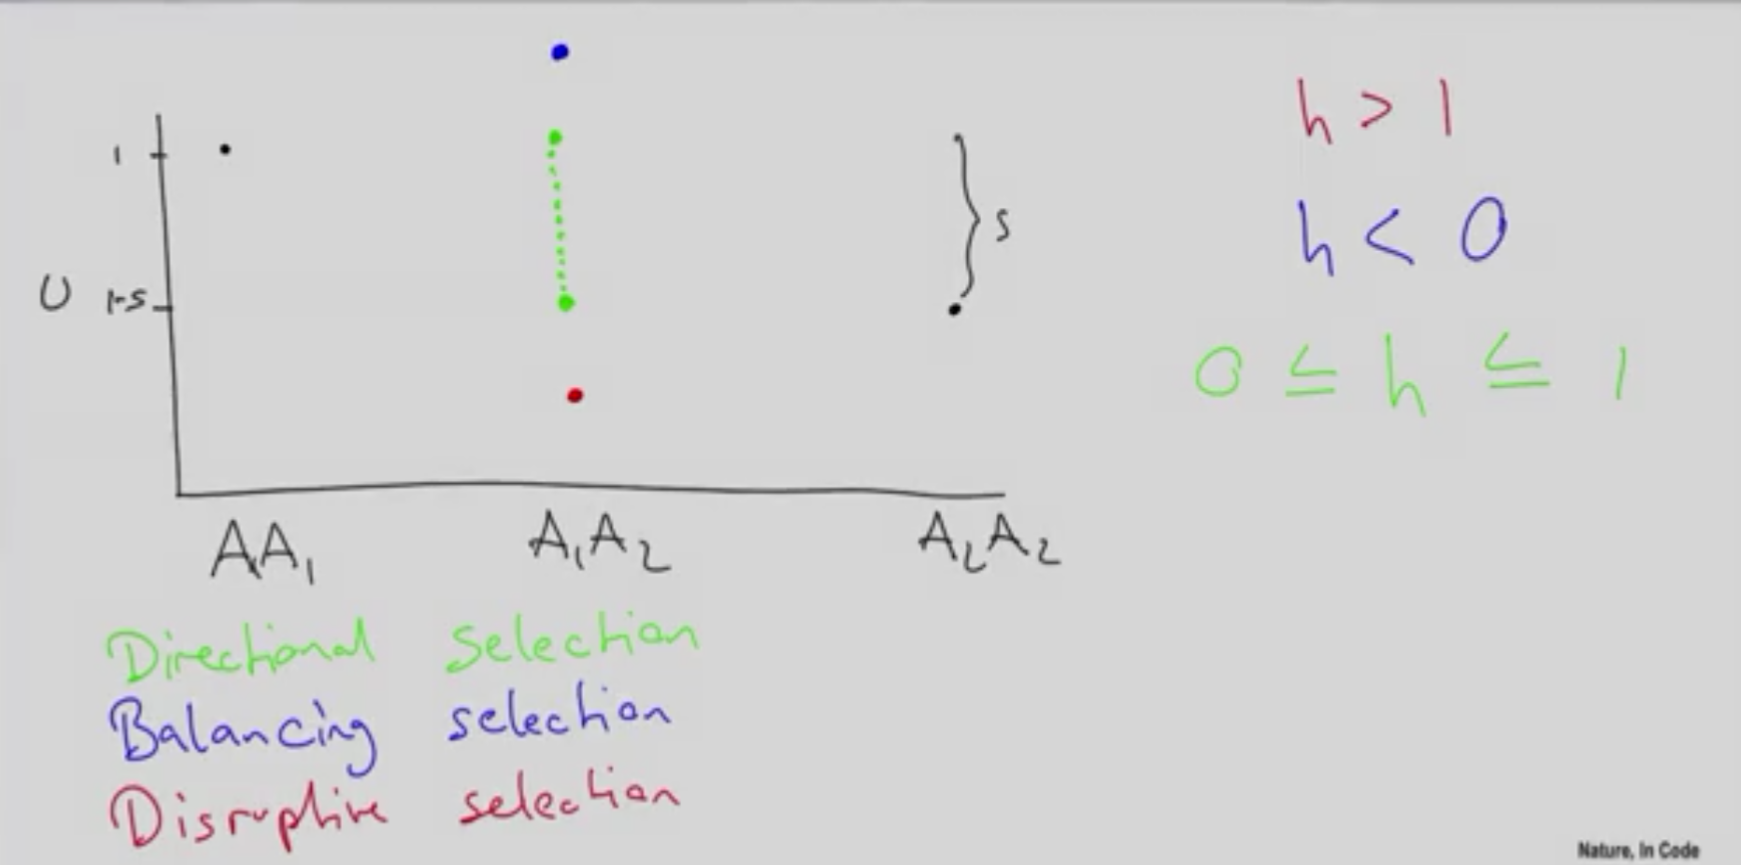 h > 1
1
s
h < 0
U 1-s
0 ≤ h ≤ 1
AA₁ A₁A₂ A₂A₂
Directional selection
Balancing selection
Disruptive selection
Nature, In Code